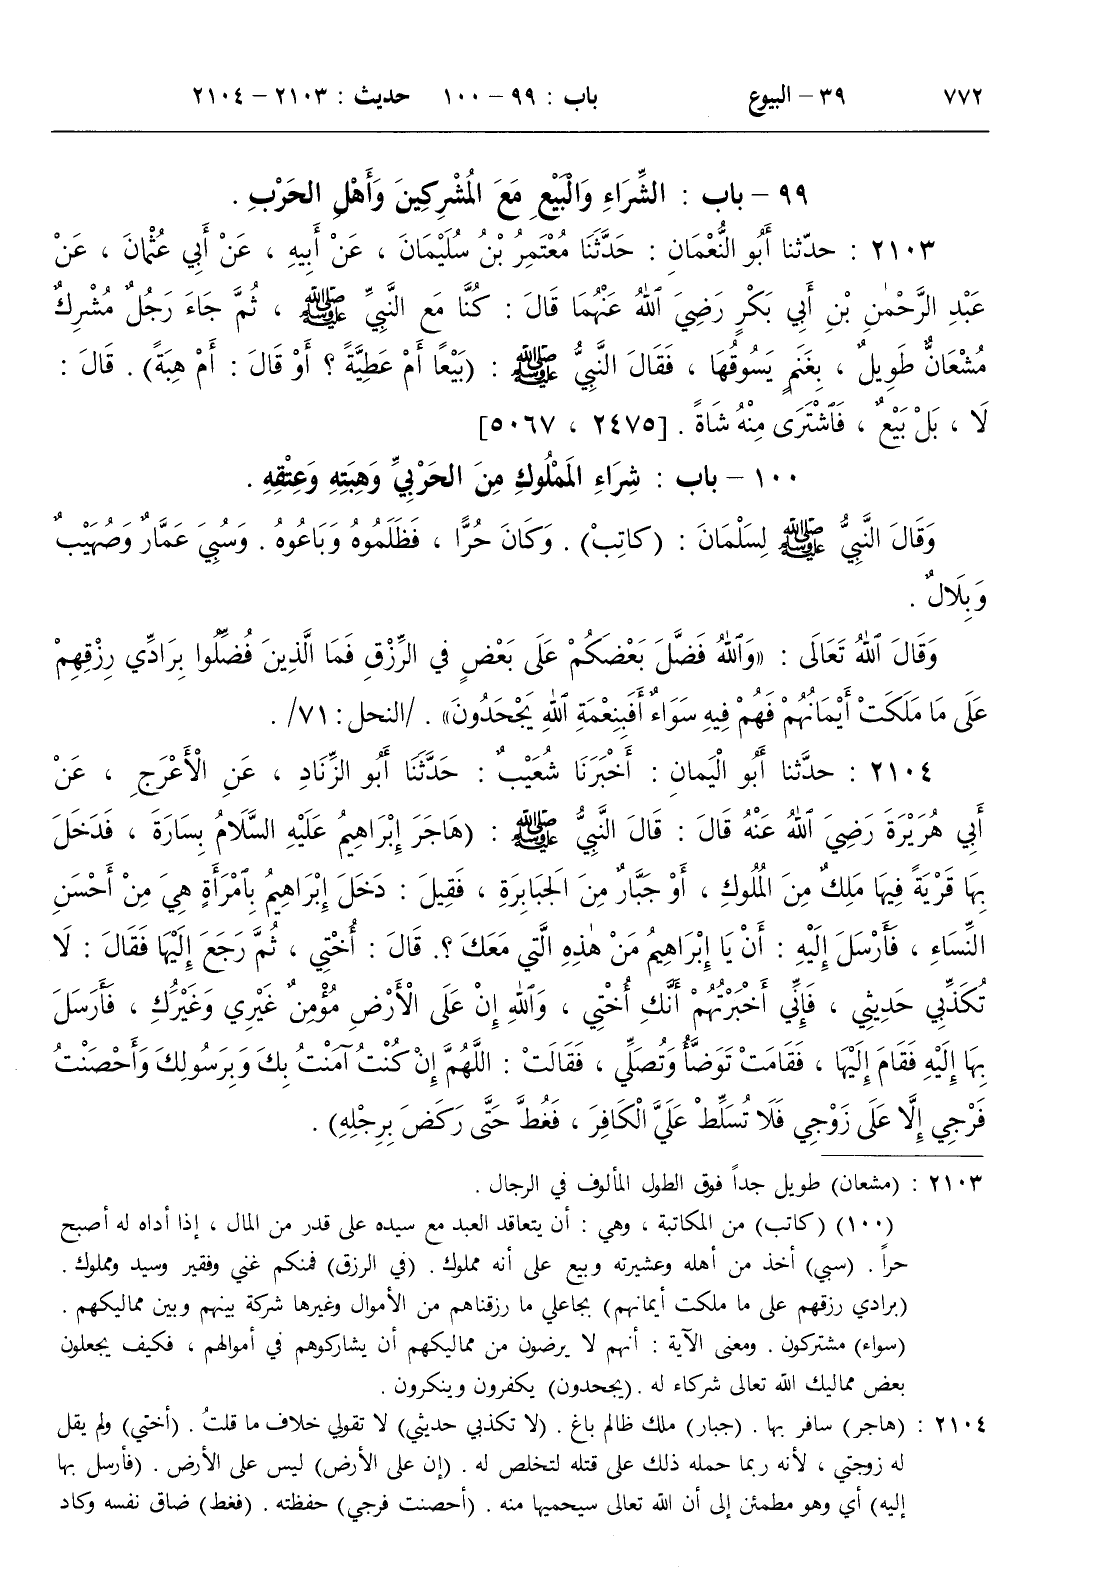 ٧٧٢ ٣٩ – البيوع باب : ٩٩ – ١٠٠ حديث : ٢١٠٣ – ٢١٠٤
٩٩ – باب : الشِّرَاءِ وَالْبَيْعِ مَعَ الْمُشْرِكِينَ وَأَهْلِ الحَرْبِ .
٢١٠٣ : حدّثنا أَبُو النُّعْمَانِ : حَدَّثَنَا مُعْتَمِرُ بْنُ سُلَيْمَانَ ، عَنْ أَبِيهِ ، عَنْ أَبِي عُثْمَانَ ، عَنْ
عَبْدِ الرَّحْمٰنِ بْنِ أَبِي بَكْرٍ رَضِيَ اللهُ عَنْهُمَا قَالَ : كُنَّا مَعَ النَّبِيِّ ﷺ ، ثُمَّ جَاءَ رَجُلٌ مُشْرِكٌ
مُشْعَانٌّ طَوِيلٌ ، بِغَنَمٍ يَسُوقُهَا ، فَقَالَ النَّبِيُّ ﷺ : (بَيْعًا أَمْ عَطِيَّةً ؟ أَوْ قَالَ : أَمْ هِبَةً) . قَالَ :
لَا ، بَلْ بَيْعٌ ، فَاشْتَرَى مِنْهُ شَاةً . [٢٤٧٥ ، ٥٠٦٧]
١٠٠ – باب : شِرَاءِ المَمْلُوكِ مِنَ الحَرْبِيِّ وَهِبَتِهِ وَعِتْقِهِ .
وَقَالَ النَّبِيُّ ﷺ لِسَلْمَانَ : (كاتِبْ) . وَكَانَ حُرًّا ، فَظَلَمُوهُ وَبَاعُوهُ . وَسُبِيَ عَمَّارٌ وَصُهَيْبٌ
وَبِلَالٌ .
وَقَالَ اللهُ تَعَالَى : «وَاللهُ فَضَّلَ بَعْضَكُمْ عَلَى بَعْضٍ في الرِّزْقِ فَمَا الَّذِينَ فُضِّلُوا بِرَادِّي رِزْقِهِمْ
عَلَى مَا مَلَكَتْ أَيْمَانُهُمْ فَهُمْ فِيهِ سَوَاءٌ أَفَبِنِعْمَةِ اللهِ يَجْحَدُونَ» . /النحل: ٧١/ .
٢١٠٤ : حدّثنا أَبُو الْيَمانِ : أَخْبَرَنَا شُعَيْبٌ : حَدَّثَنَا أَبُو الزِّنَادِ ، عَنِ الْأَعْرَجِ ، عَنْ
أَبِي هُرَيْرَةَ رَضِيَ اللهُ عَنْهُ قَالَ : قَالَ النَّبِيُّ ﷺ : (هَاجَرَ إِبْرَاهِيمُ عَلَيْهِ السَّلَامُ بِسَارَةَ ، فَدَخَلَ
بِهَا قَرْيَةً فِيهَا مَلِكٌ مِنَ الْمُلُوكِ ، أَوْ جَبَّارٌ مِنَ الجَبَابِرَةِ ، فَقِيلَ : دَخَلَ إِبْرَاهِيمُ بِامْرَأَةٍ هِيَ مِنْ أَحْسَنِ
النِّسَاءِ ، فَأَرْسَلَ إِلَيْهِ : أَنْ يَا إِبْرَاهِيمُ مَنْ هٰذِهِ الَّتِي مَعَكَ ؟. قَالَ : أُخْتِي ، ثُمَّ رَجَعَ إِلَيْهَا فَقَالَ : لَا
تُكَذِّبِي حَدِيثِي ، فَإِنِّي أَخْبَرْتُهُمْ أَنَّكِ أُخْتِي ، وَاللهِ إِنْ عَلَى الْأَرْضِ مُؤْمِنٌ غَيْرِي وَغَيْرُكِ ، فَأَرْسَلَ
بِهَا إِلَيْهِ فَقَامَ إِلَيْهَا ، فَقَامَتْ تَوَضَّأُ وَتُصَلِّي ، فَقَالَتْ : اللَّهُمَّ إِنْ كُنْتُ آمَنْتُ بِكَ وَبِرَسُولِكَ وَأَحْصَنْتُ
فَرْجِي إِلَّا عَلَى زَوْجِي فَلَا تُسَلِّطْ عَلَيَّ الْكَافِرَ ، فَغُطَّ حَتَّى رَكَضَ بِرِجْلِهِ) .
٢١٠٣ : (مشعان) طويل جداً فوق الطول المألوف في الرجال .
(١٠٠) (كاتب) من المكاتبة ، وهي : أن يتعاقد العبد مع سيده على قدر من المال ، إذا أداه له أصبح
حراً . (سبي) أخذ من أهله وعشيرته وبيع على أنه مملوك . (في الرزق) فمنكم غني وفقير وسيد ومملوك .
(برادي رزقهم على ما ملكت أيمانهم) بجاعلي ما رزقناهم من الأموال وغيرها شركة بينهم وبين مماليكهم .
(سواء) مشتركون . ومعنى الآية : أنهم لا يرضون من مماليكهم أن يشاركوهم في أموالهم ، فكيف يجعلون
بعض مماليك الله تعالى شركاء له . (يجحدون) يكفرون وينكرون .
٢١٠٤ : (هاجر) سافر بها . (جبار) ملك ظالم باغ . (لا تكذبي حديثي) لا تقولي خلاف ما قلتُ . (أختي) ولم يقل
له زوجتي ، لأنه ربما حمله ذلك على قتله لتخلص له . (إن على الأرض) ليس على الأرض . (فأرسل بها
إليه) أي وهو مطمئن إلى أن الله تعالى سيحميها منه . (أحصنت فرجي) حفظته . (فغط) ضاق نفسه وكاد